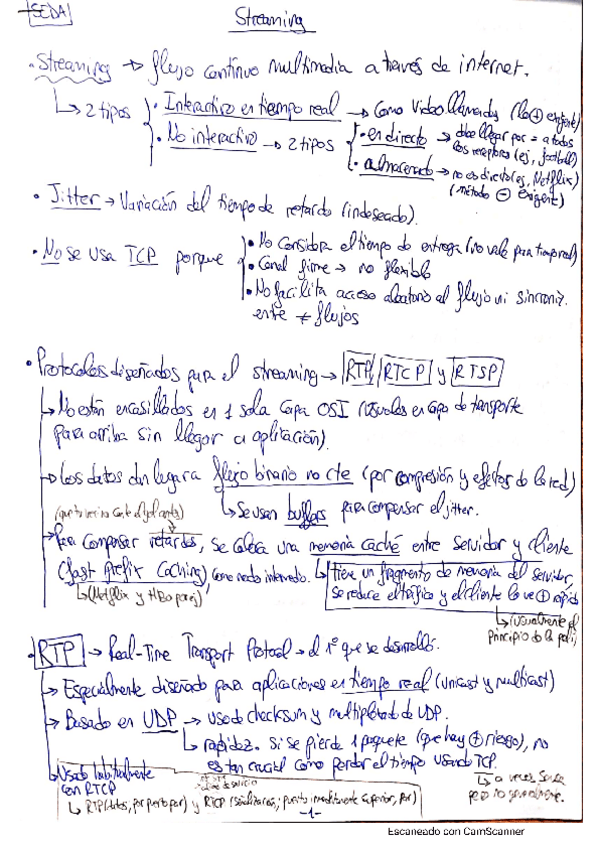 SEDA
Streaming
• Streaming → flujo continuo multimedia a través de internet.
↳ 2 tipos
• Interactivo en tiempo real → Como Videollamadas (lo ⊕ exigente)
• No interactivo → 2 tipos
• en directo → debe llegar por = a todos
los receptores (ej, football)
• almacenado → no es directo (ej, Netflix)
(método ⊖ exigente)
• Jitter → Variación del tiempo de retardo (indeseado).
• No se usa TCP porque
• No considera el tiempo de entrega (no vale para tiempo real)
• Canal firme → no flexible
• No facilita acceso aleatorio al flujo ni sincroniz.
entre ≠ flujos
• Protocolos diseñados para el streaming → RTP, RTCP y RTSP
↳ No están encasillados en 1 sola capa OSI (usuales en capa de transporte
para arriba sin llegar a aplicación).
↳ Los datos dan lugar a flujo binario no cte (por compresión y efectos de la red)
↳ Se usan buffers para compensar el jitter.
↳ Para compensar retardos, se coloca una memoria caché entre servidor y cliente
(fast prefix caching), como nodo intermedio.
↳ (Netflix y HBO
↳ tiene un fragmento de memoria del servidor,
se reduce el tráfico y el cliente lo ve ⊕ rápido
↳ (usualmente el
principio de la peli)
• RTP → Real-Time Transport Protocol → el 1º que se desarrolló.
↳ Especialmente diseñado para aplicaciones en tiempo real (unicast y multicast)
↳ Basado en UDP → uso de checksum y multiplexado de UDP.
↳ rapidez. Si se pierde 1 paquete (que hay ⊕ riesgo), no
es tan crucial como perder el tiempo usando TCP.
↳ a veces se usa
pero no generalmente.
↳ Usado habitualmente
con RTCP
↳ RTP (datos, por puerto par) y RTCP (señalización, puerto inmediatamente superior,
-1-
Escaneado con CamScanner